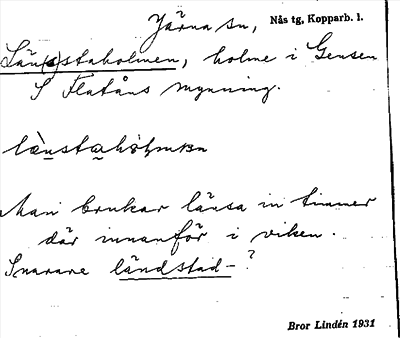 Järna sn, Nås tg, Kopparb. l.
Län(s)staholmen, holme i Gensen
S Flatåns mynning.
lä̀nstahòlmən
Man brukar länsa in timmer
där innanför i viken.
Snarare ländstad- ?
Bror Lindén 1931